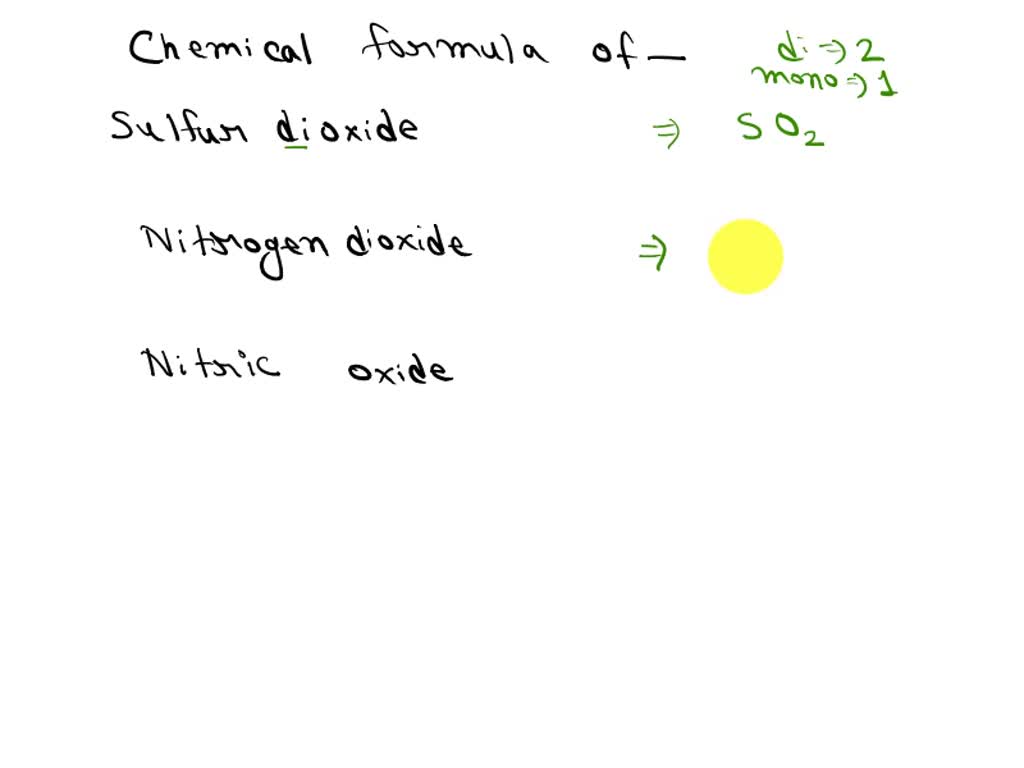 Chemical formula of — di ⇒ 2
mono ⇒ 1
Sulfur dioxide ⇒ SO₂
Nitrogen dioxide ⇒
Nitric oxide